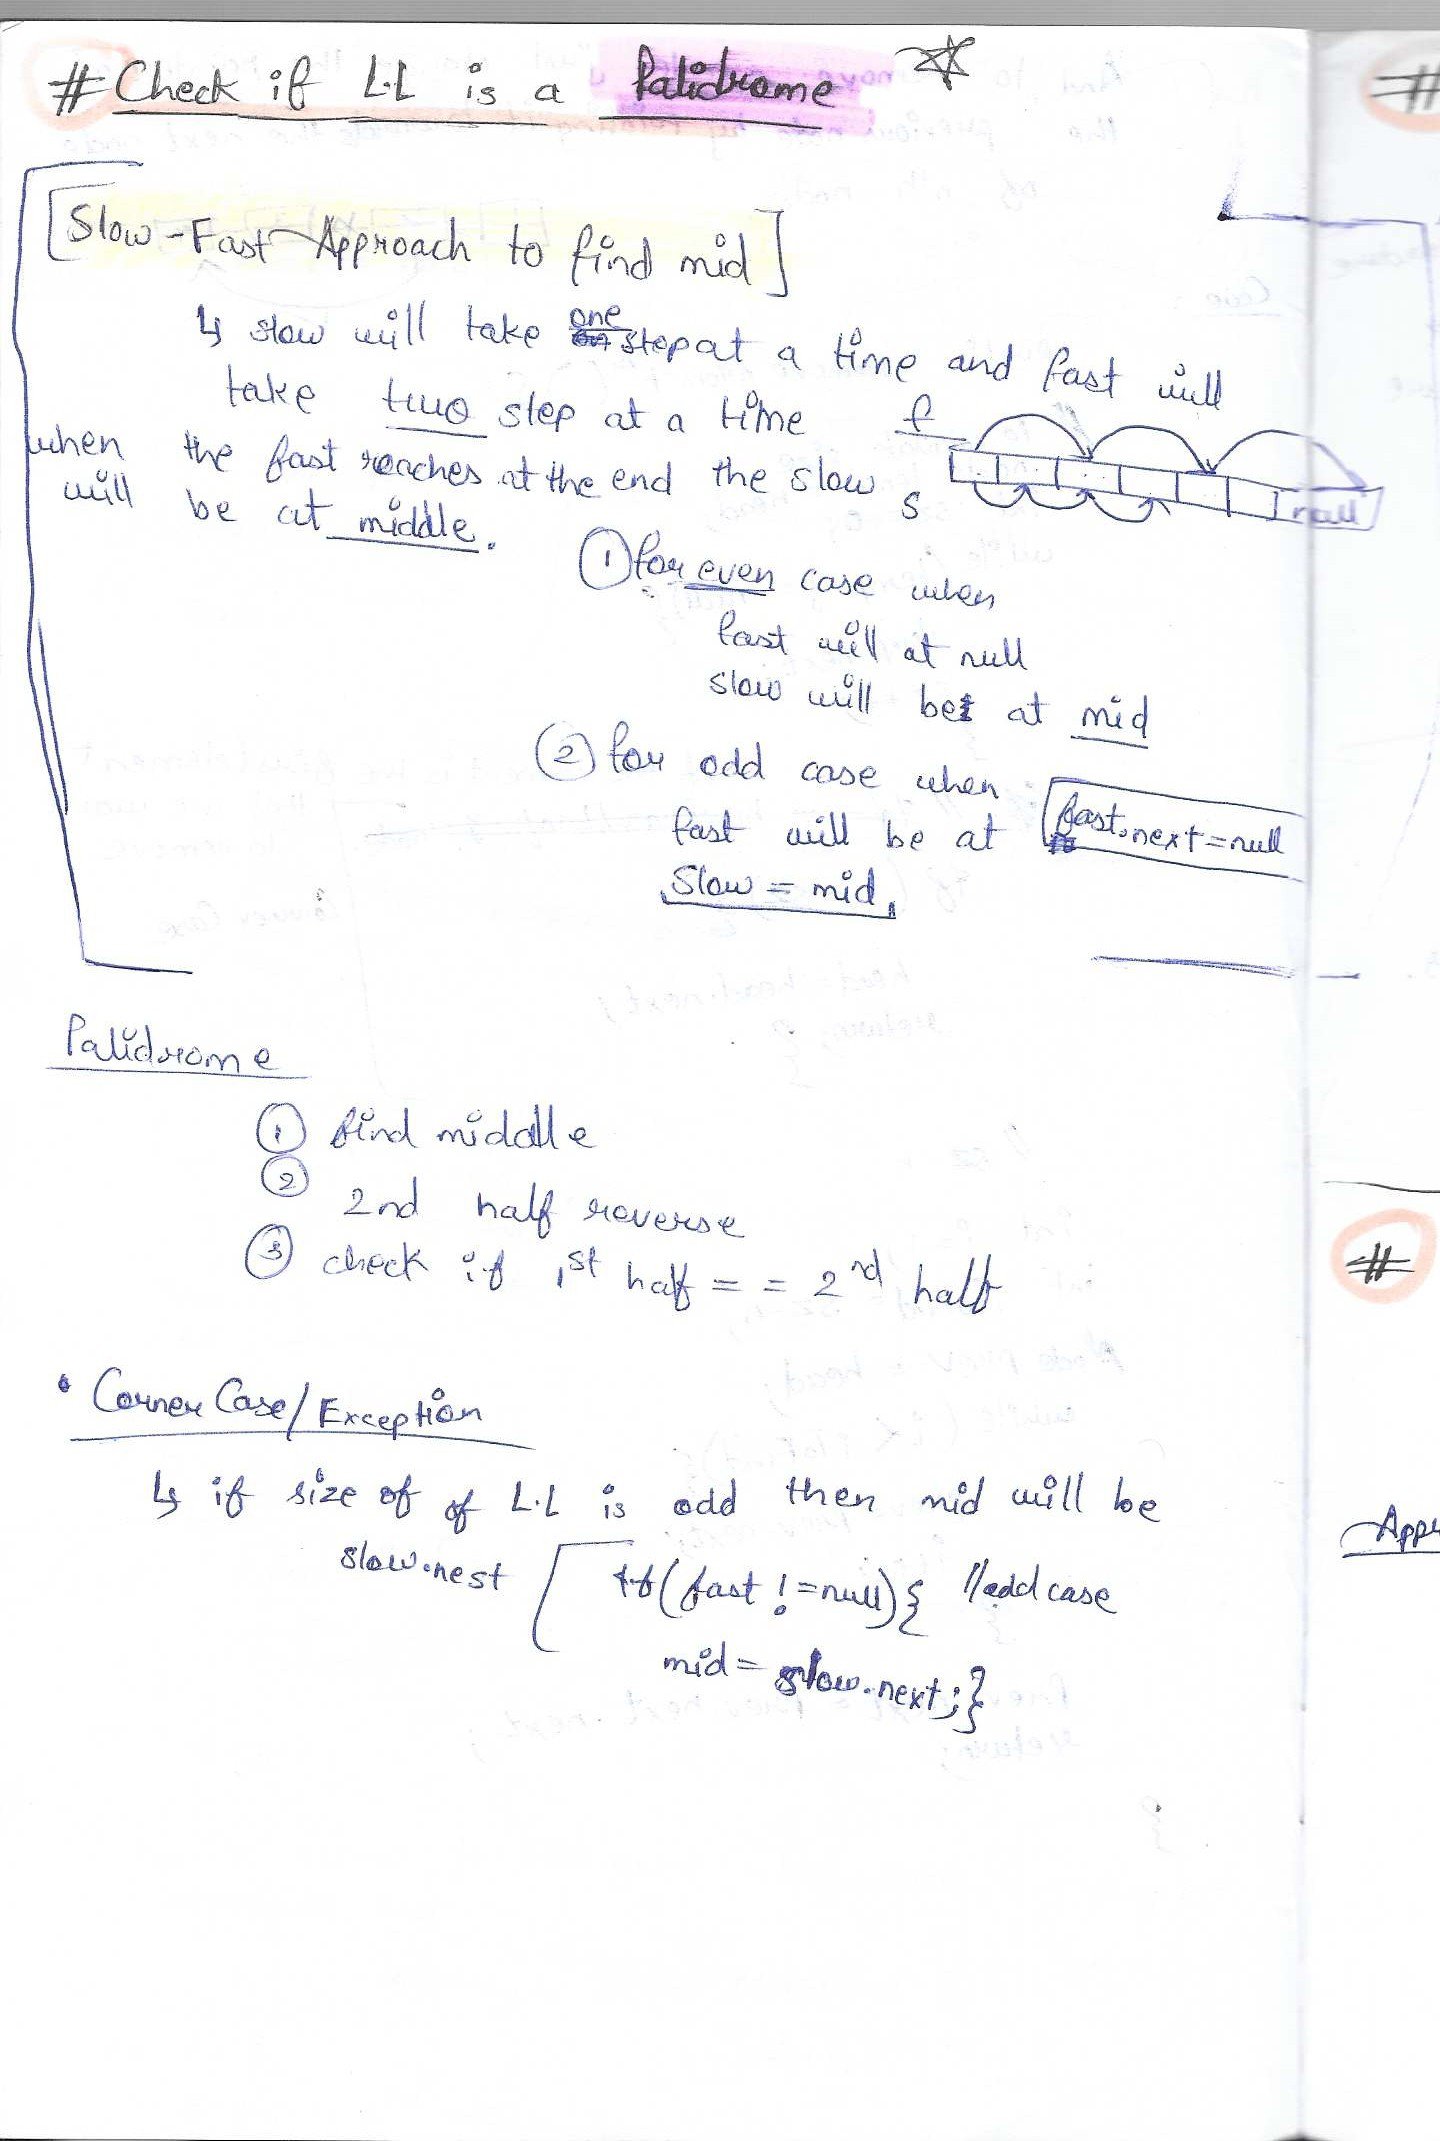 # Check if L.L is a Palidrome
[Slow-Fast Approach to find mid]
↳ slow will take one step at a time and fast will
take two step at a time
f
when the fast reaches at the end the slow
s
null
will be at middle.
① for even case when
fast will at null
slow will be at mid
② for odd case when
fast will be at fast.next=null
Slow = mid.
Palidrome
① find middle
② 2nd half reverse
③ check if 1st half == 2nd half
• Corner Case/Exception
↳ if size of of L.L is odd then mid will be
slow.nest
if(fast != null){ //odd case
mid = slow.next;}
#
#